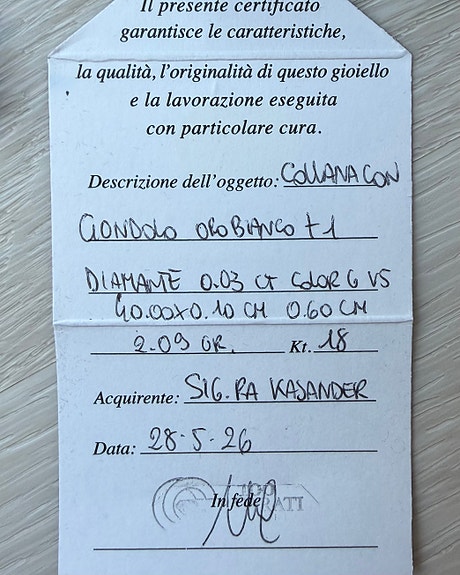 Il presente certificato
garantisce le caratteristiche,
la qualità, l'originalità di questo gioiello
e la lavorazione eseguita
con particolare cura.
Descrizione dell'oggetto: COLLANA CON
CIONDOLO ORO BIANCO + 1
DIAMANTE 0.03 CT COLOR G VS
40.00x0.10 CM 0.60 CM
2.09 GR. Kt. 18
Acquirente: SIG.RA KASANDER
Data: 28-5-26
In fede